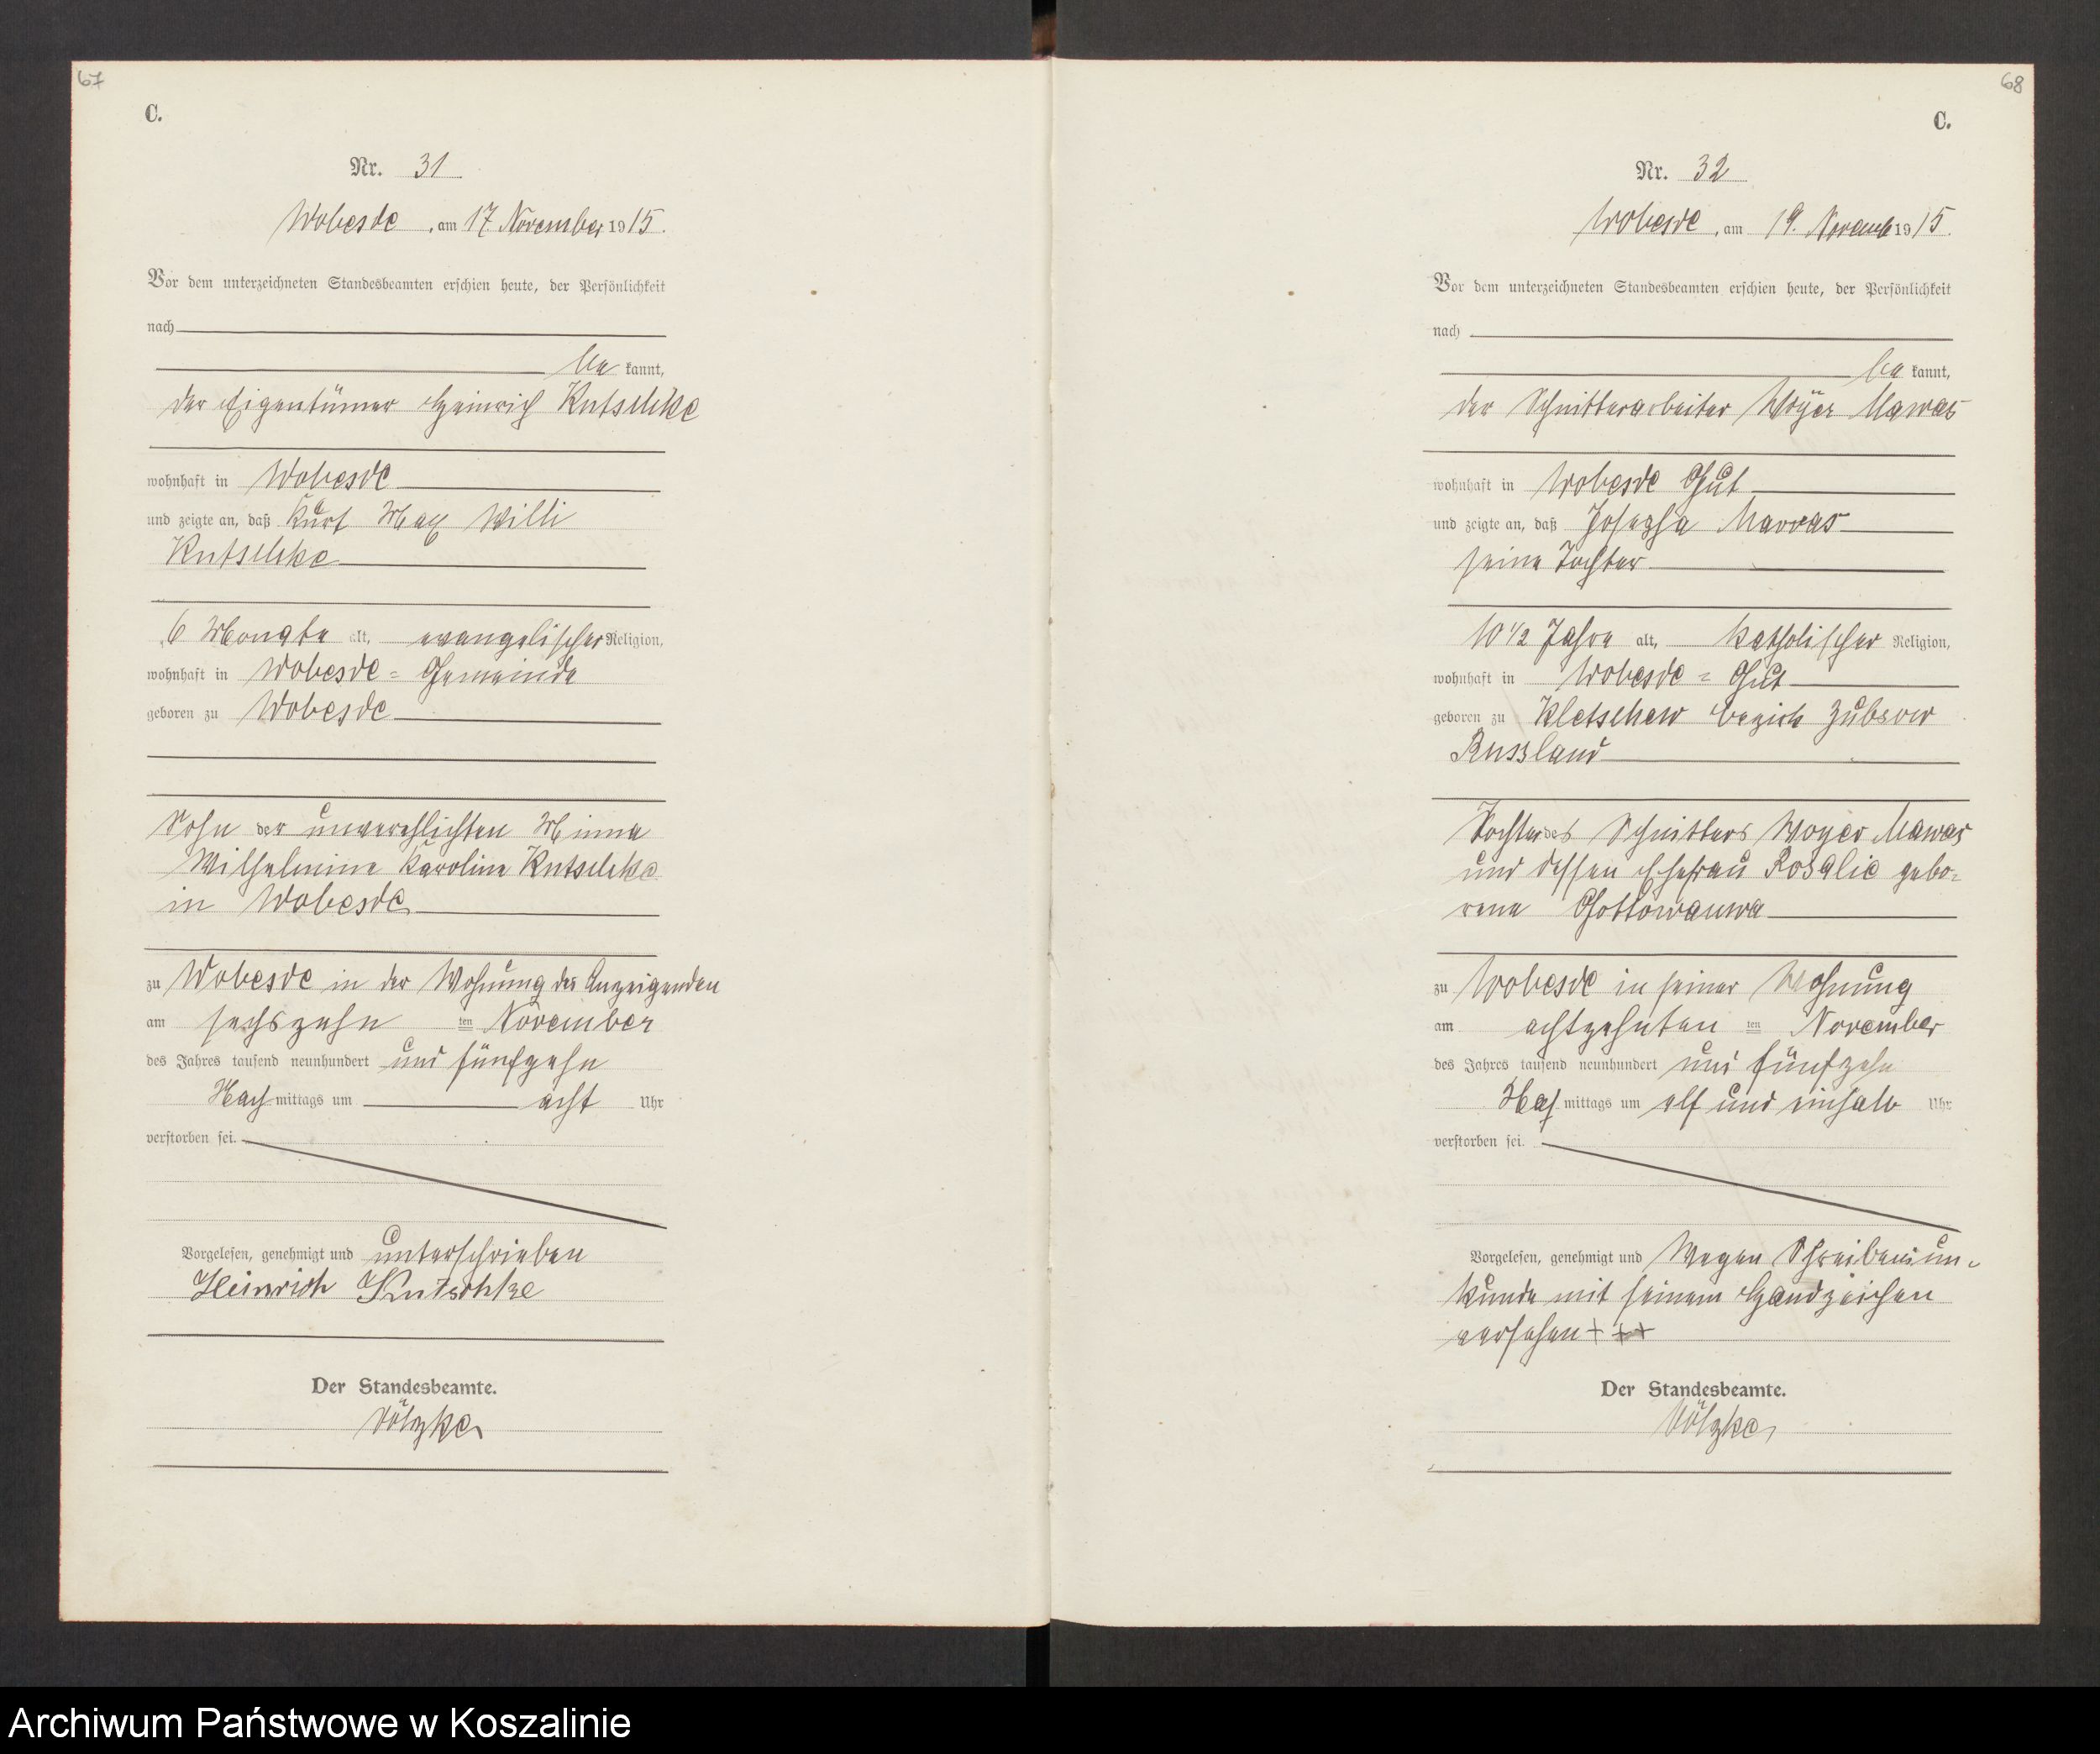 67
C.
Nr. 31
Wobesde, am 17 November 1915.
Vor dem unterzeichneten Standesbeamten erschien heute, der Persönlichkeit
nach
be kannt,
der Eigentümer Heinrich Kutschke
wohnhaft in Wobesde
und zeigte an, daß Kurt Max Willi
Kutschke
6 Monate alt, evangelischer Religion,
wohnhaft in Wobesde = Gemeinde
geboren zu Wobesde
Sohn der unverehlichten Minna
Wilhelmine Karoline Kutschke
in Wobesde
zu Wobesde in der Wohnung des Anzeigenden
am sechszehn ten November
des Jahres tausend neunhundert und fünfzehn
Nach mittags um acht Uhr
verstorben sei.
Vorgelesen, genehmigt und unterschrieben
Heinrich Kutschke
Der Standesbeamte.
Völzke
68
C.
Nr. 32
Wobesde, am 19. Novemb 1915.
Vor dem unterzeichneten Standesbeamten erschien heute, der Persönlichkeit
nach
be kannt,
der Schnitterarbeiter Woÿer Mawas
wohnhaft in Wobesde Gut
und zeigte an, daß Josepha Mawas
seine Tochter
10 1/2 Jahre alt, katholischer Religion,
wohnhaft in Wobesde = Gut
geboren zu Kletschew bezirk Zubrow
Russland
Tochter des Schnitters Woyer Mawas
und dessen Ehefrau Rosalie gebo=
rene Gottowauwa
zu Wobesde in seiner Wohnung
am achtzehnten ten November
des Jahres tausend neunhundert und fünfzehn
Nach mittags um elf und einhalb Uhr
verstorben sei.
Vorgelesen, genehmigt und Wegen Schreibensun=
kunde mit seinem Handzeichen
versehen + + +
Der Standesbeamte.
Völzke
Archiwum Państwowe w Koszalinie